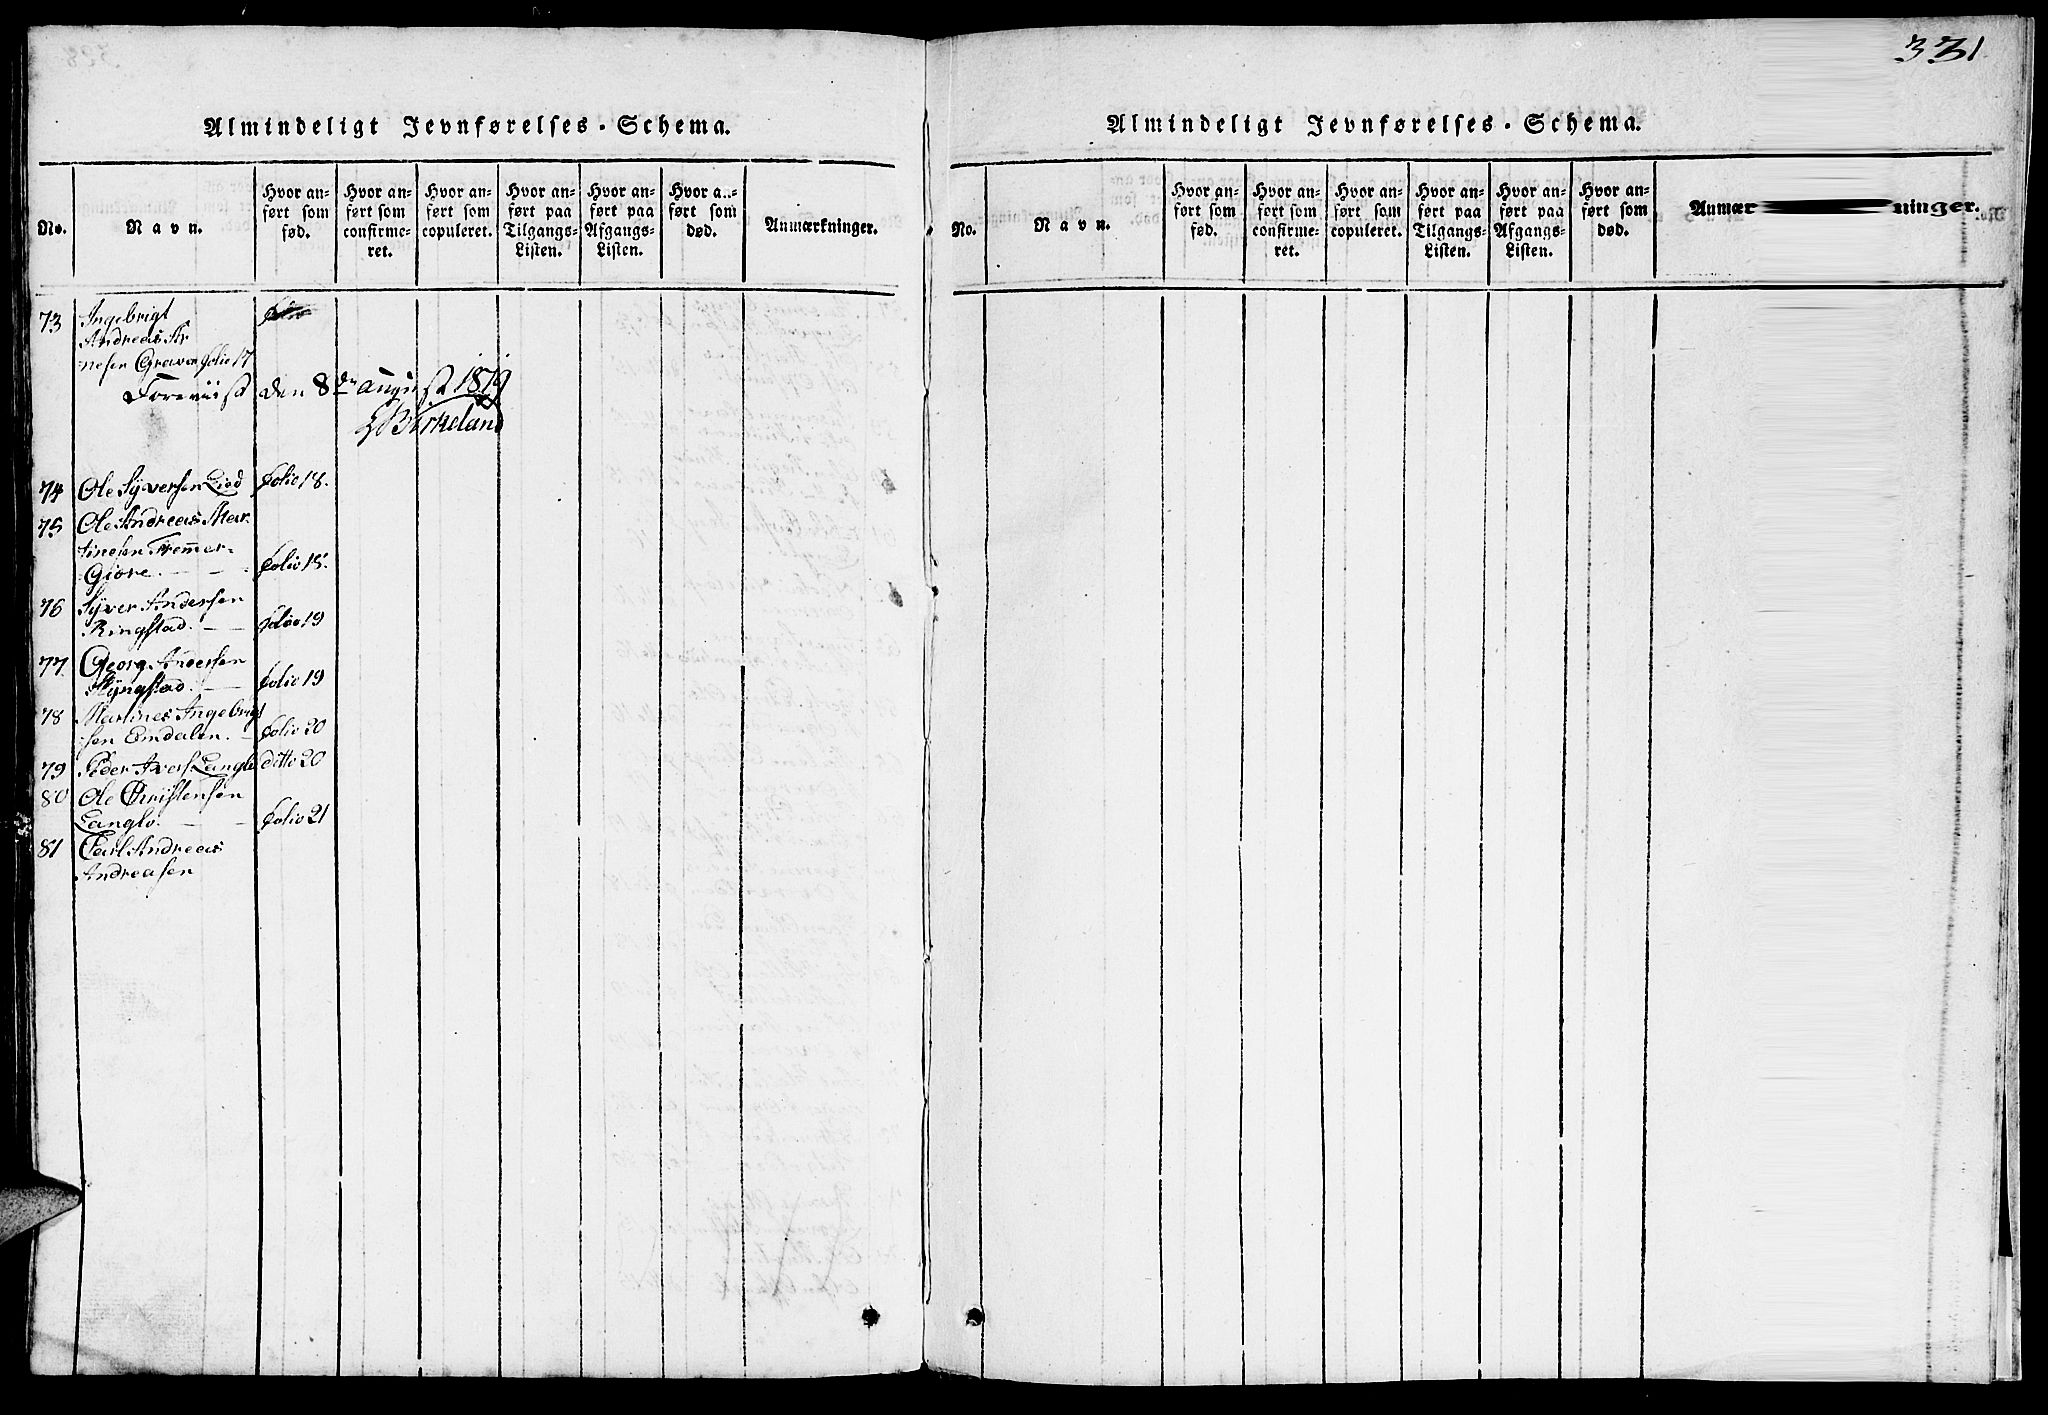 331
Almindeligt Jevnførelses-Schema.
No.
Navn.
Hvor an-
ført som
fød.
Hvor an-
ført som
confirme-
ret.
Hvor an-
ført som
copuleret.
Hvor an-
ført paa
Tilgangs-
Listen.
Hvor an-
ført paa
Afgangs-
Listen.
Hvor a..-
ført som
død.
Anmærkninger.
73 Ingebrigt
Andreas Ar
nesen Graven folio 17
Foreviist den 8de august 1819
Birkeland
74 Ole Syversen Lied folio 18.
75 Ole Andreas Mar-
tinesen Fremmer-
Giore. folio 18.
76 Syver Andersen
Ringstad. folio 19
77 Georg Andersen
Ryngstad. folio 19
78 Martines Ingebrigt
sen Emdalen. folio 20
79 Peder Ivers Langlo ditto 20
80 Ole Christensen
Langlo. folio 21
81 Carl Andreas
Andreasen
Almindeligt Jevnførelses-Schema.
No.
Navn.
Hvor an-
ført som
fød.
Hvor an-
ført som
confirme-
ret.
Hvor an-
ført som
copuleret.
Hvor an-
ført paa
Tilgangs-
Listen.
Hvor an-
ført paa
Afgangs-
Listen.
Hvor an-
ført som
død.
Anmær ninger.